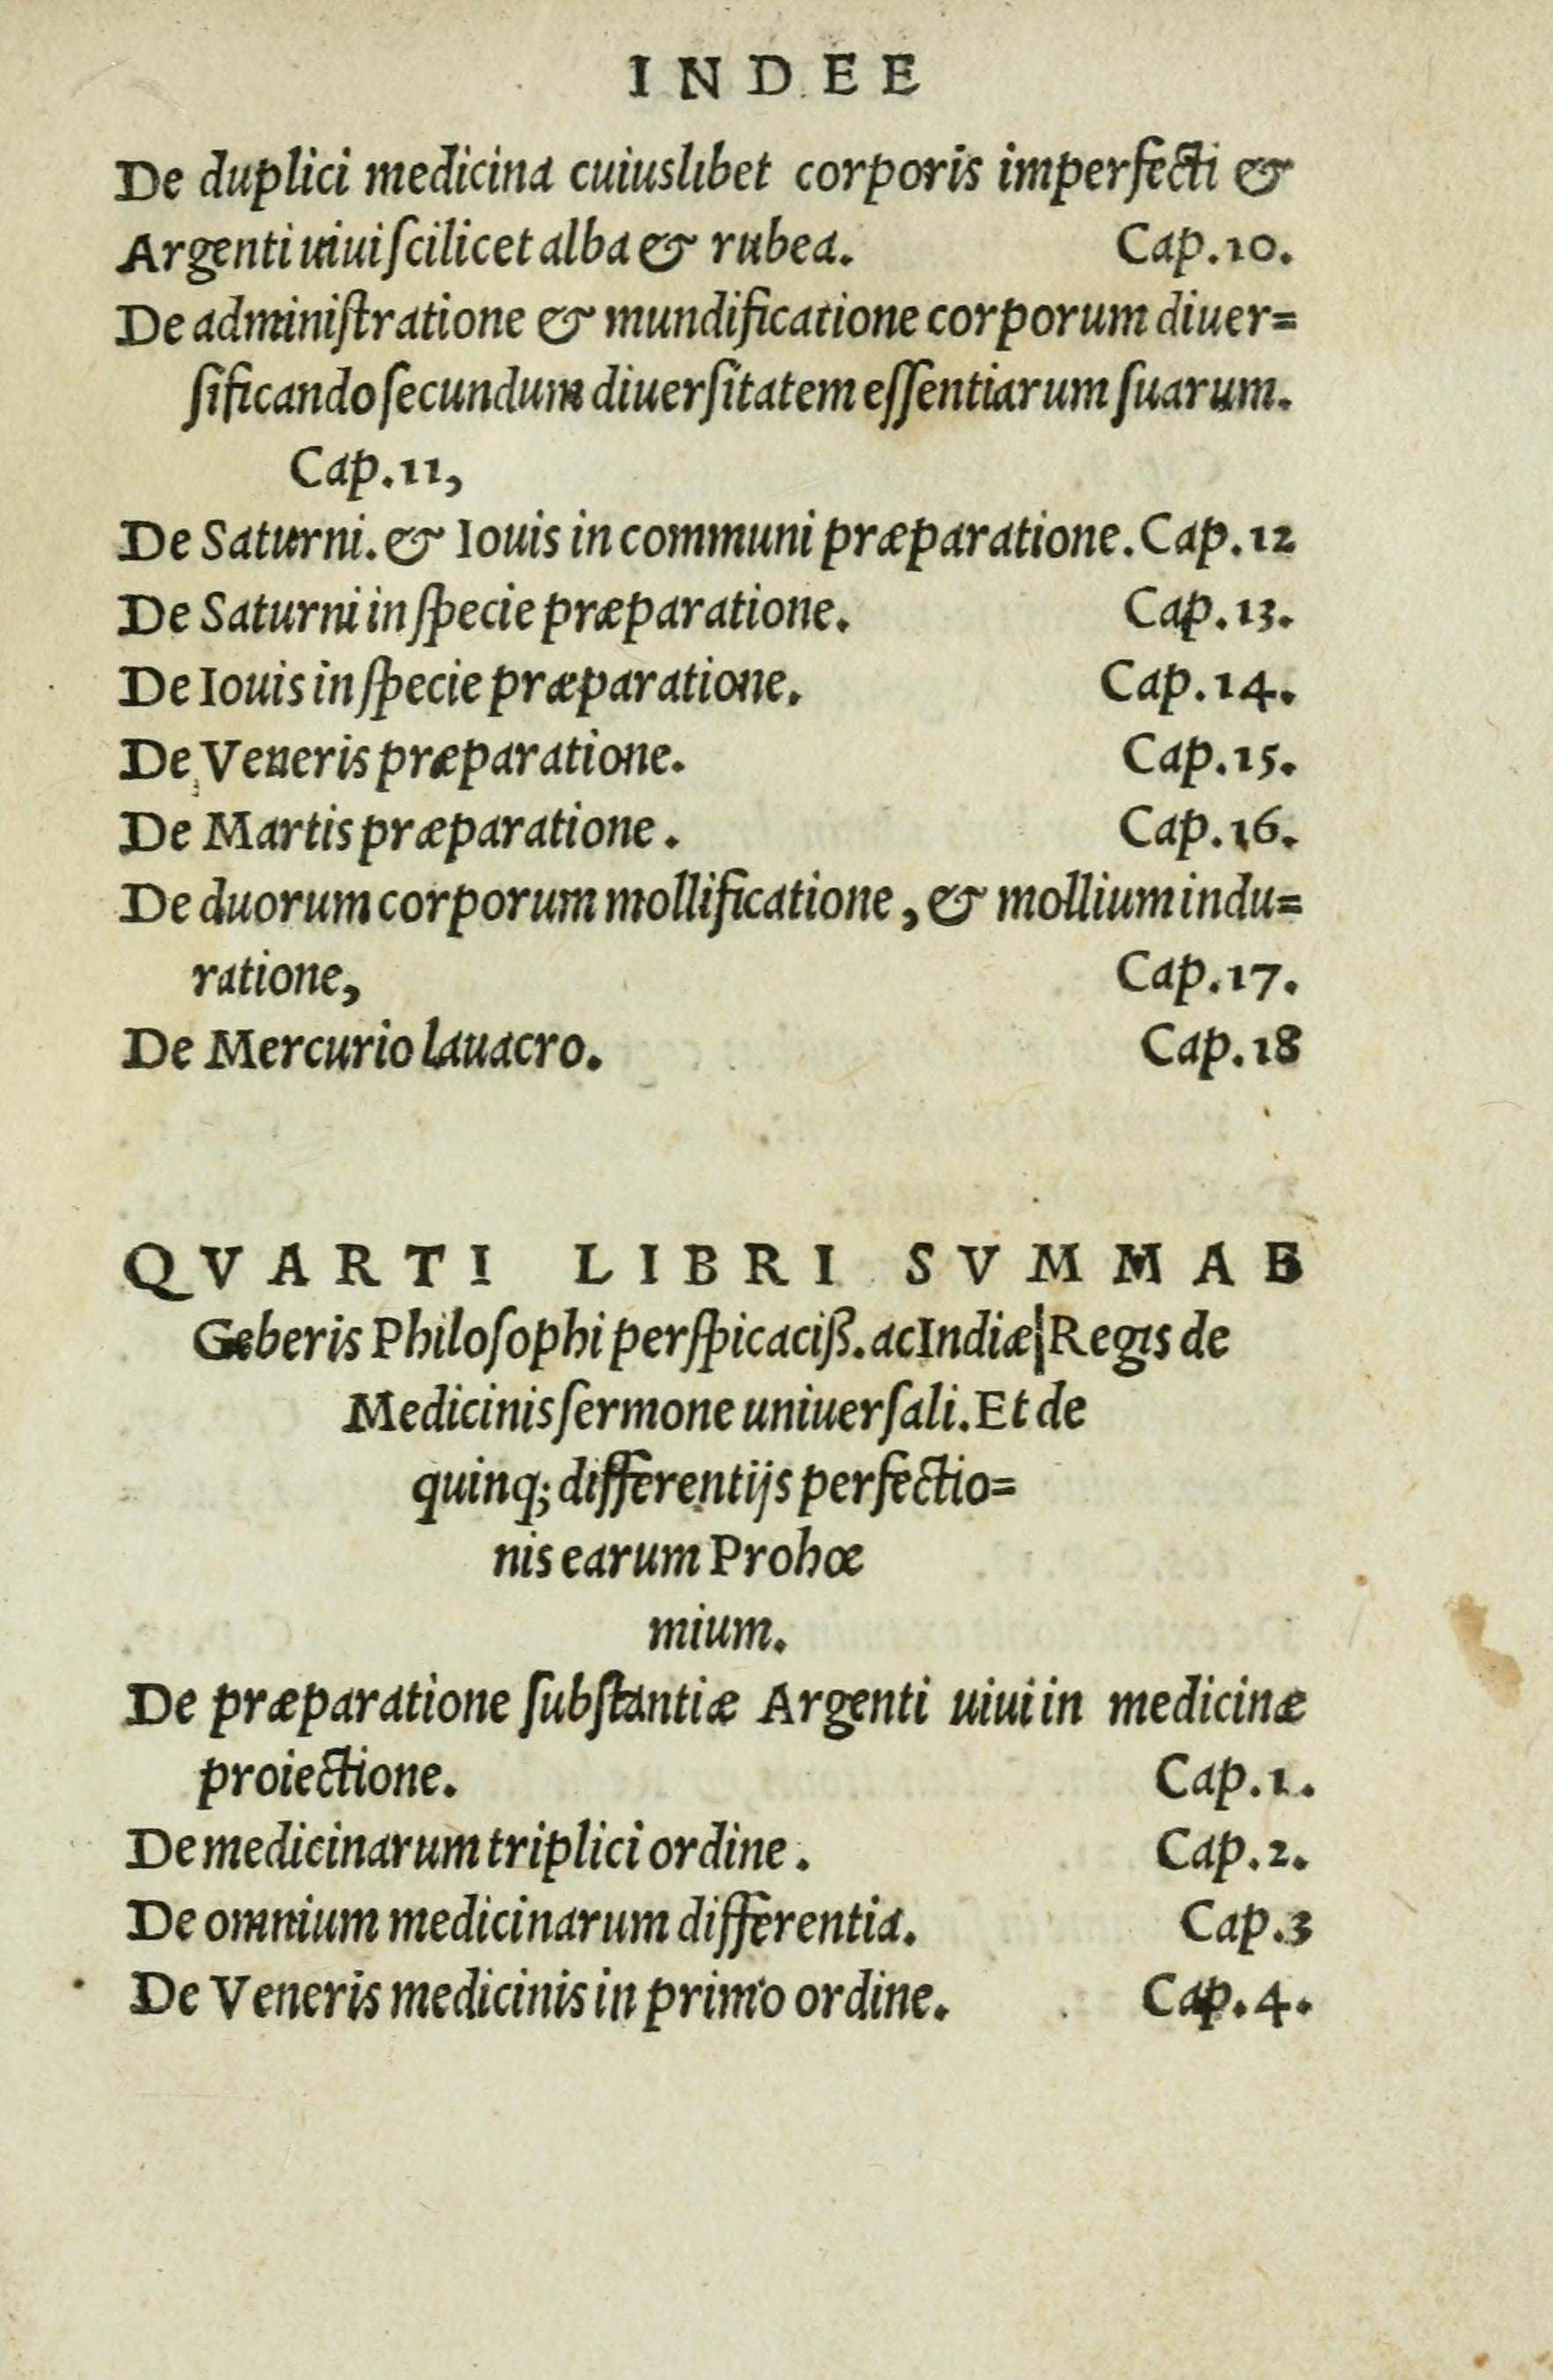 INDEE
De duplici medicina cuiuslibet corporis imperfecti &
Argenti uiui ſcilicet alba & rubea. Cap.10.
De adminiſtratione & mundificatione corporum diuer=
ſificando ſecundum diuerſitatem eſſentiarum ſuarum.
Cap.11,
De Saturni. & Iouis in communi præparatione. Cap.12
De Saturni in ſpecie præparatione. Cap.13.
De Iouis in ſpecie præparatione. Cap.14.
De Veneris præparatione. Cap.15.
De Martis præparatione. Cap.16.
De duorum corporum mollificatione, & mollium indu=
ratione, Cap.17.
De Mercurio lauacro. Cap.18
QVARTI LIBRI SVMMAE
Geberis Philoſophi perſpicaciß. ac Indiæ| Regis de
Medicinis ſermone uniuerſali. Et de
quinq; differentijs perfectio=
nis earum Prohœ
mium.
De præparatione ſubſtantiæ Argenti uiui in medicinæ
proiectione. Cap.1.
De medicinarum triplici ordine. Cap.2.
De omnium medicinarum differentia. Cap.3
De Veneris medicinis in primo ordine. Cap.4.